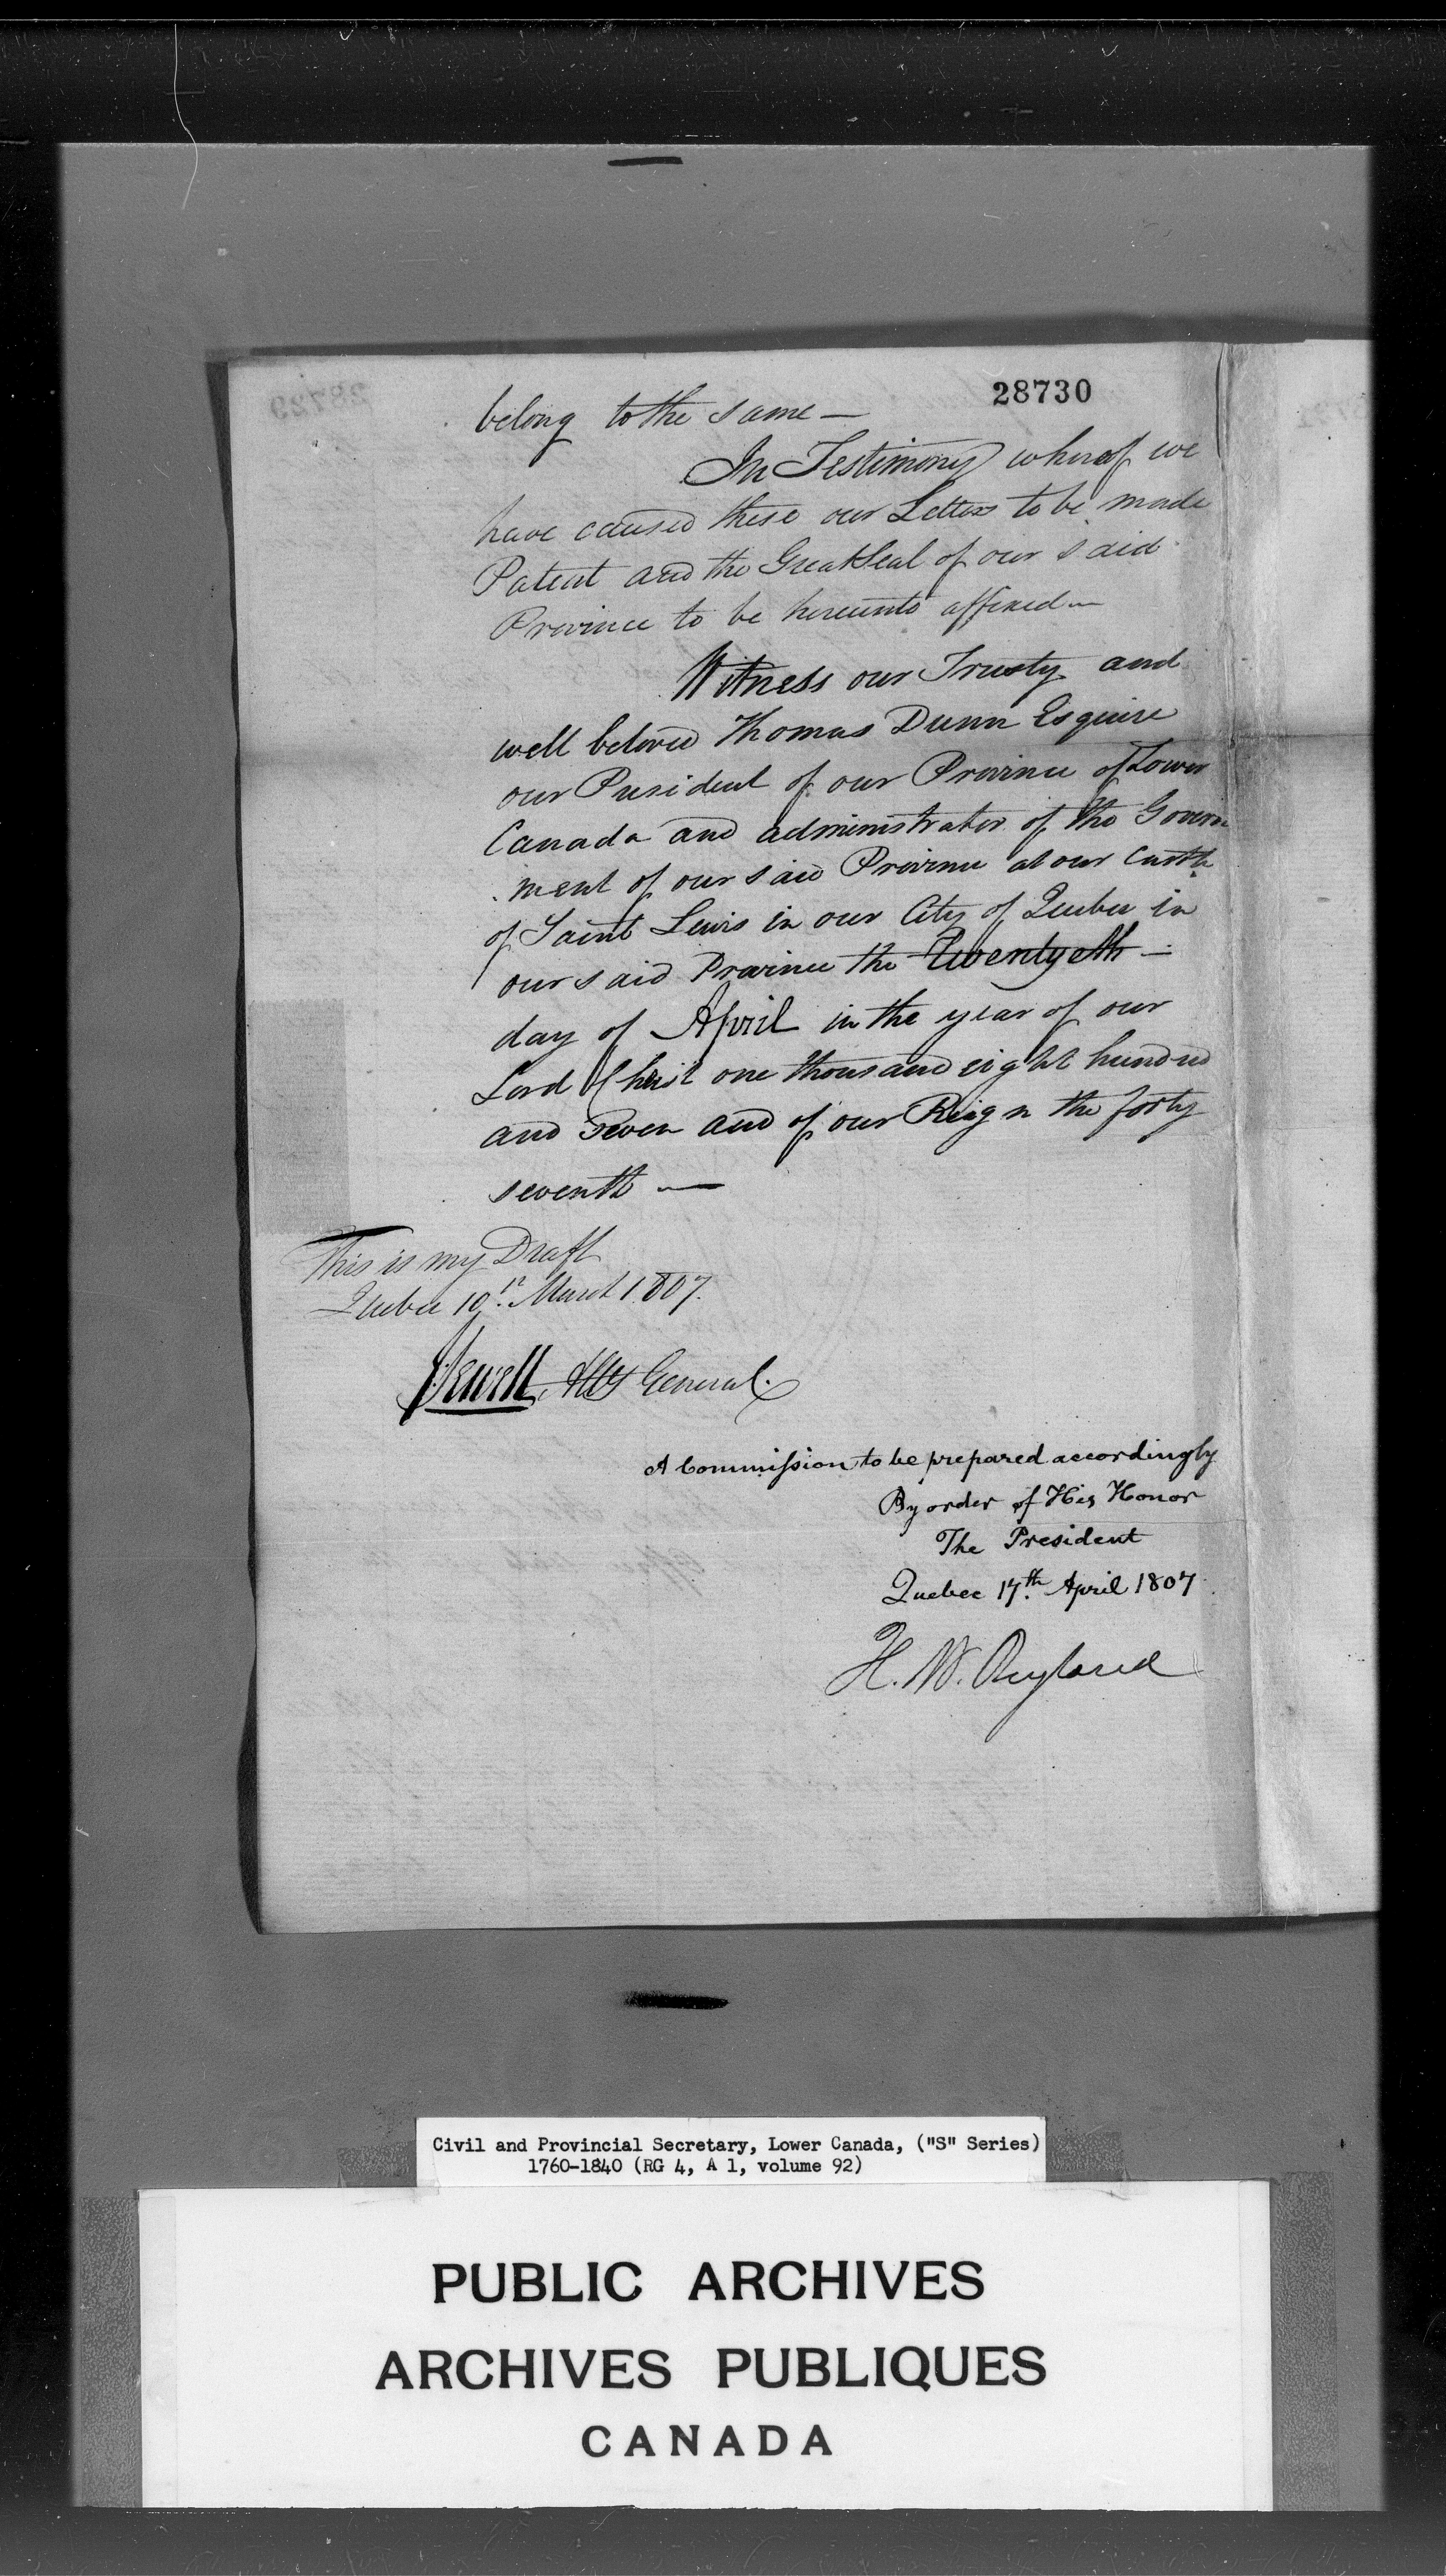 28730
belong to the same —
In Testimony whereof we
have caused these our Letters to be made
Patent and the Great Seal of our said
Province to be hereunto affixed —
Witness our Trusty and
well beloved Thomas Dunn Esquire
our President of our Province of Lower
Canada and administrator of the Govern
ment of our said Province at our Castle
of Saint Lewis in our City of Quebec in
our said Province the Twentyeth —
day of April in the year of our
Lord Christ one thousand eight hundred
and seven and of our Reign the forty
seventh —
This is my Draft
Quebec 10th March 1807.
J Sewell, Atty General.
A Commission to be prepared accordingly
By order of His Honor
The President
Quebec 17th April 1807
H. W. Ryland
Civil and Provincial Secretary, Lower Canada, ("S" Series)
1760-1840 (RG 4, A 1, volume 92)
PUBLIC ARCHIVES
ARCHIVES PUBLIQUES
CANADA